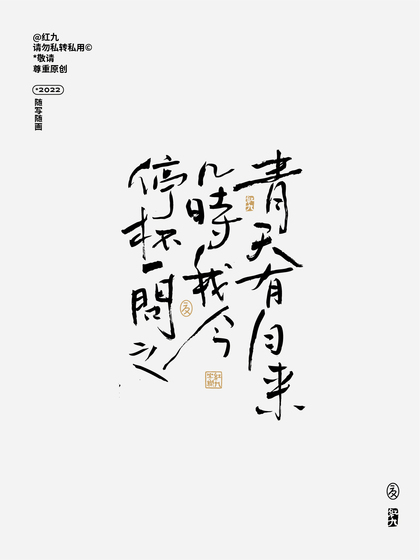 @红九
请勿私转私用©
*敬请
尊重原创
*2022
随写随画
青天有月来
几時我今
停杯一問之
红九
红九